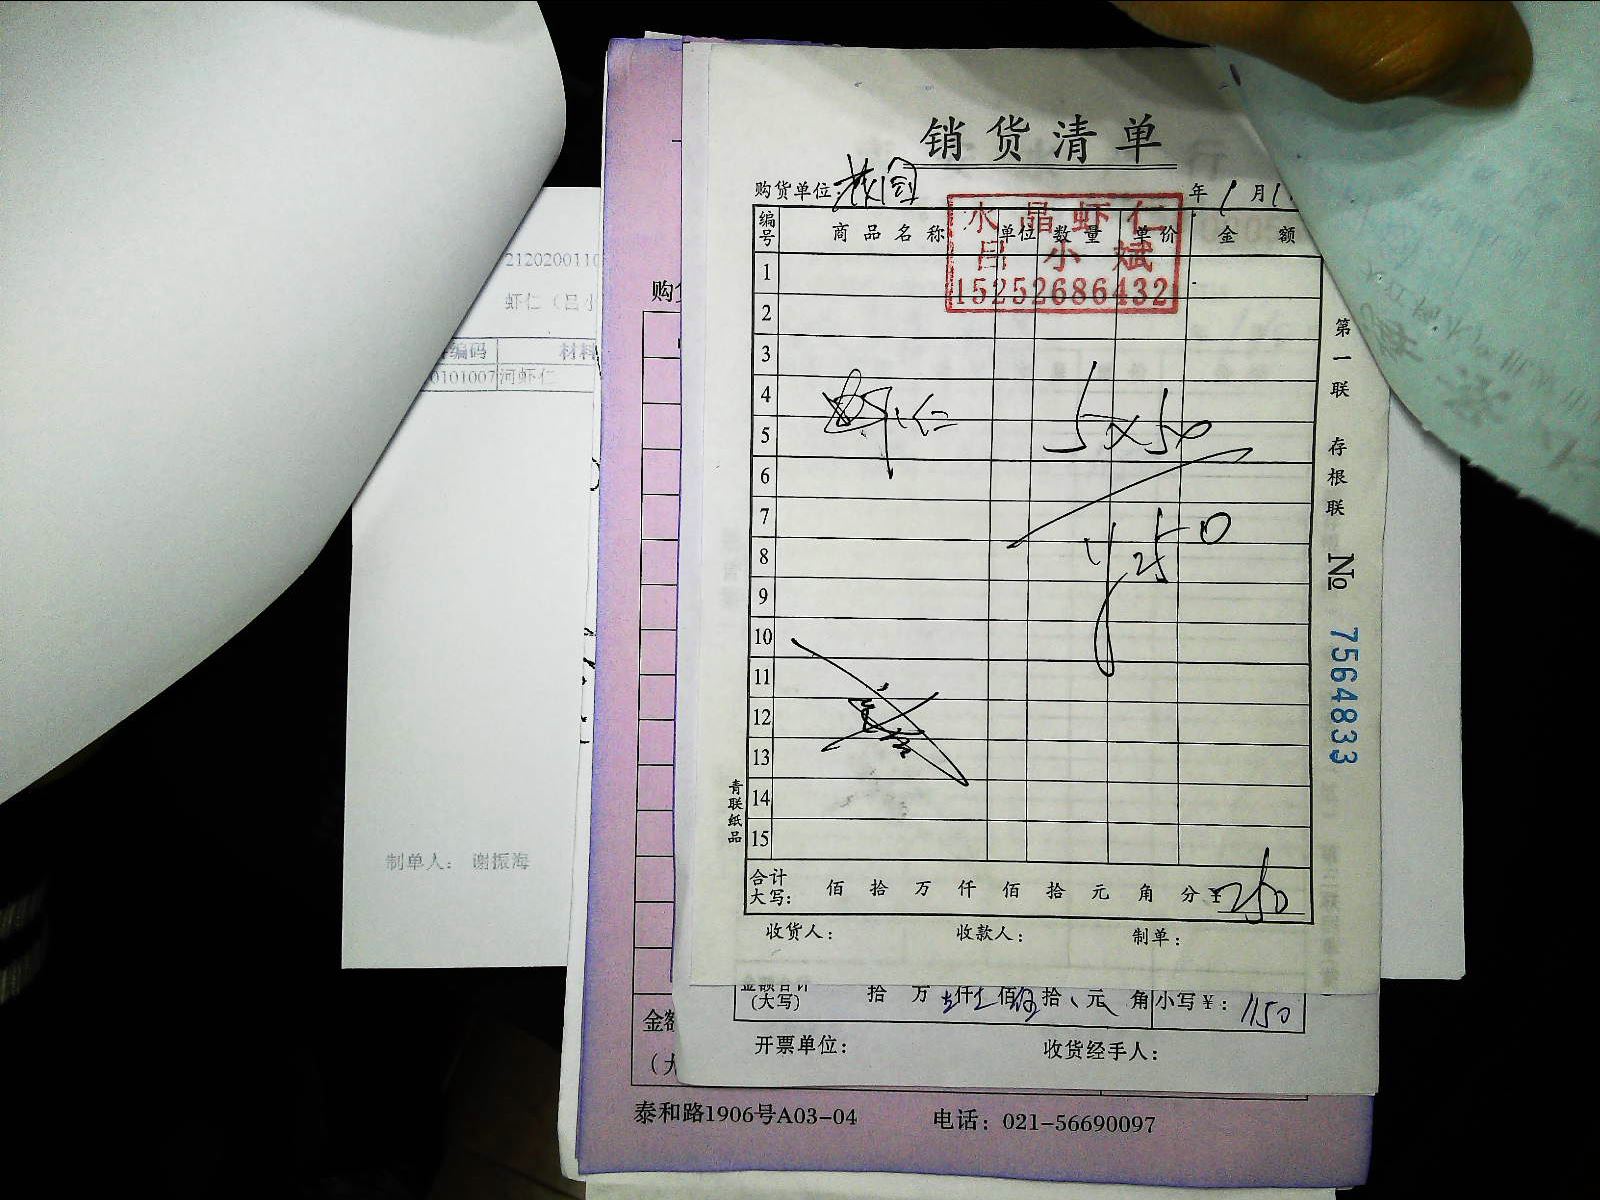 销货清单
购货单位:
年1月1
水晶虾仁
吕小斌
15252686432
编号 商品名称 单位 数量 单价 金额
1
2
3
4
5
虾仁 5×50
6
7
¥250
8
9
10
11
12
13
14
15
合计大写: 佰 拾 万 仟 佰 拾 元 角 分 ¥250
收货人: 收款人: 制单:
第一联 存根联 № 7564833
青联纸品
金额合计(大写) 拾 万 仟 佰 拾 元 角 小写¥: 1150
开票单位: 收货经手人:
购货
金额
(大
泰和路1906号A03-04 电话: 021-56690097
2120200110
虾仁(吕小
编码 材料
0101007 河虾仁
制单人: 谢振海